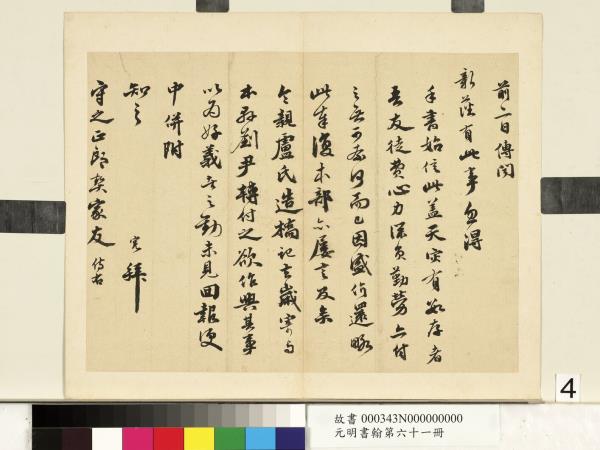 前一日傳聞
新蔭有此事忽得
手書始信此蓋天定有數存者
吾友徒費心力深負勤勞亦付
之無可奈何而已因盛价還略
此奉復本部亦屢言及矣
令親盧氏造橋記去歲寄与
本縣劉尹轉付之欲作興其事
以為好義者之勸未見回報便
中併附
知之
寬拜
守之正郎契家友侍右
4
故書 000343N000000000
元明書翰第六十一冊